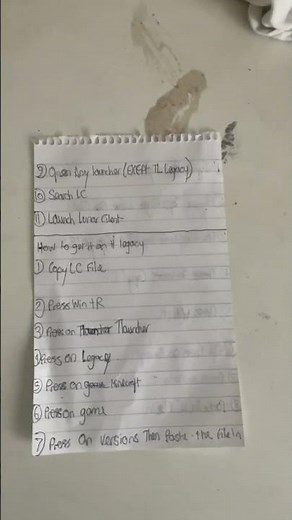 9) Open Any launcher (EXCEPT TL Legacy)
10) Search LC
11) Launch Lunar Client
How to get it on tl legacy
1) Copy LC File
2) Press Win + R
3) Press on Tlauncher
4) Press on Legacy
5) Press on game
6) Press on game
7) Press On versions Then Paste the file in